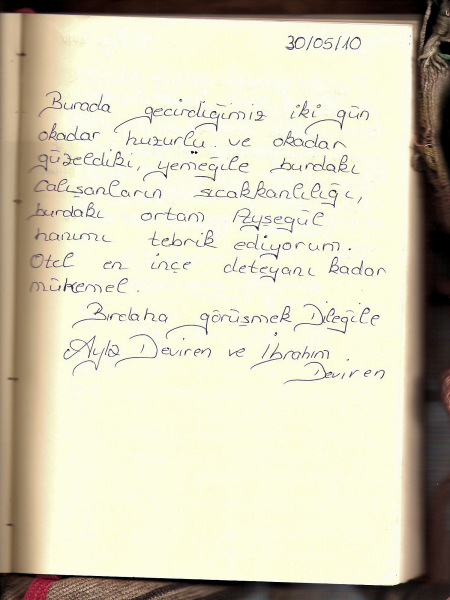 30/05/10
Burada geçirdiğimiz iki gün
okadar huzurlu ve okadar
güzeldiki, yemeğile burdakı
calışanların sıcakkanlılığı,
burdakı ortam Ayşegül
hanımı tebrik ediyorum.
Otel en ince deteyanı kadar
mükemel.
Birdaha görüşmek Dileğile
Ayla Deviren ve İbrahim.
Deviren